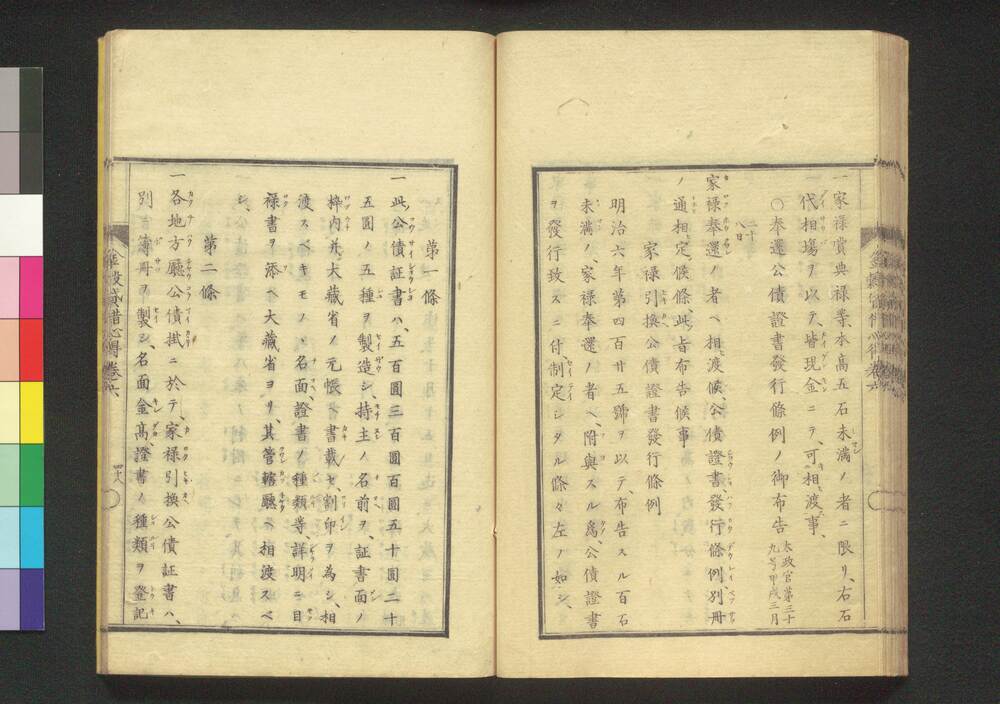 一家禄賞典禄業本高五石未満ノ者ニ限リ、右石
代相場ヲ以テ、皆現金ニテ、可相渡事、
○奉還公債證書發行條例ノ御布告 太政官第三十九号甲戌三月
二十八日
家禄奉還ノ者ヘ相渡候、公債證書發行條例、別冊
ノ通相定候條、此旨布告候事
家禄引換公債證書發行條例
明治六年第四百廿五號ヲ以テ、布告スル百石
未満ノ、家禄奉還ノ者ヘ、附與スル為、公債證書
ヲ發行致スニ付、制定シタル條々左ノ如シ、
第一條
一此公債証書ハ、五百圓三百圓百圓五十圓二十
五圓ノ五種ヲ製造シ、持主ノ名前ヲ、証書面ノ
枠内并大藏省ノ元帳ヘ書載セ、割印ヲ為シ、相
渡スベキモノノ名面、證書ノ種類等詳明ニ目
禄書ヲ添ヘ大藏省ヨリ其管轄廳ヘ相渡スベ
シ、
第二條
一各地方廳公債掛ニ於テ、家禄引換公債証書ハ、
別ニ簿冊ヲ製シ、名面金高、證書ノ種類ヲ登記
四十八